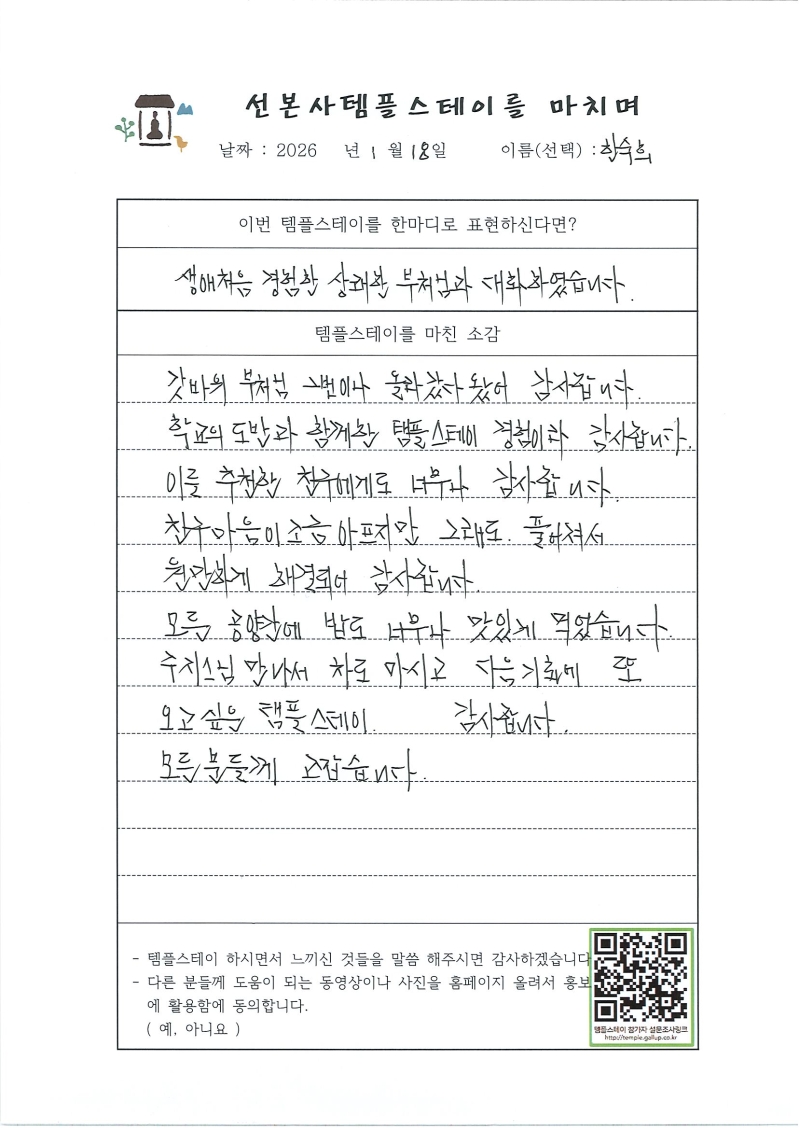 선본사템플스테이를 마치며
날짜 : 2026 년 1 월 18일 이름(선택) : 한숙희
이번 템플스테이를 한마디로 표현하신다면?
생애처음 경험한 상쾌한 부처님과 대화하였습니다.
템플스테이를 마친 소감
갓바위 부처님 그번이나 올라갔다 왔어 감사합니다.
학교의 도반과 함께한 템플스테이 경험이라 감사합니다.
이를 추천한 친구에게도 너무나 감사합니다.
친구마음이 조금 아프지만 그래도 풀어져서
원만하게 해결되어 감사합니다.
모름 공양간에 밥도 너무나 맛있게 먹었습니다.
주지스님 만나서 차도 마시고 다음기회에 또
오고싶은 템플스테이. 감사합니다.
모든분들께 고맙습니다.
- 템플스테이 하시면서 느끼신 것들을 말씀 해주시면 감사하겠습니다
- 다른 분들께 도움이 되는 동영상이나 사진을 홈페이지 올려서 홍보
에 활용함에 동의합니다.
( 예, 아니요 )
템플스테이 참가자 설문조사링크
http://temple.gallup.co.kr